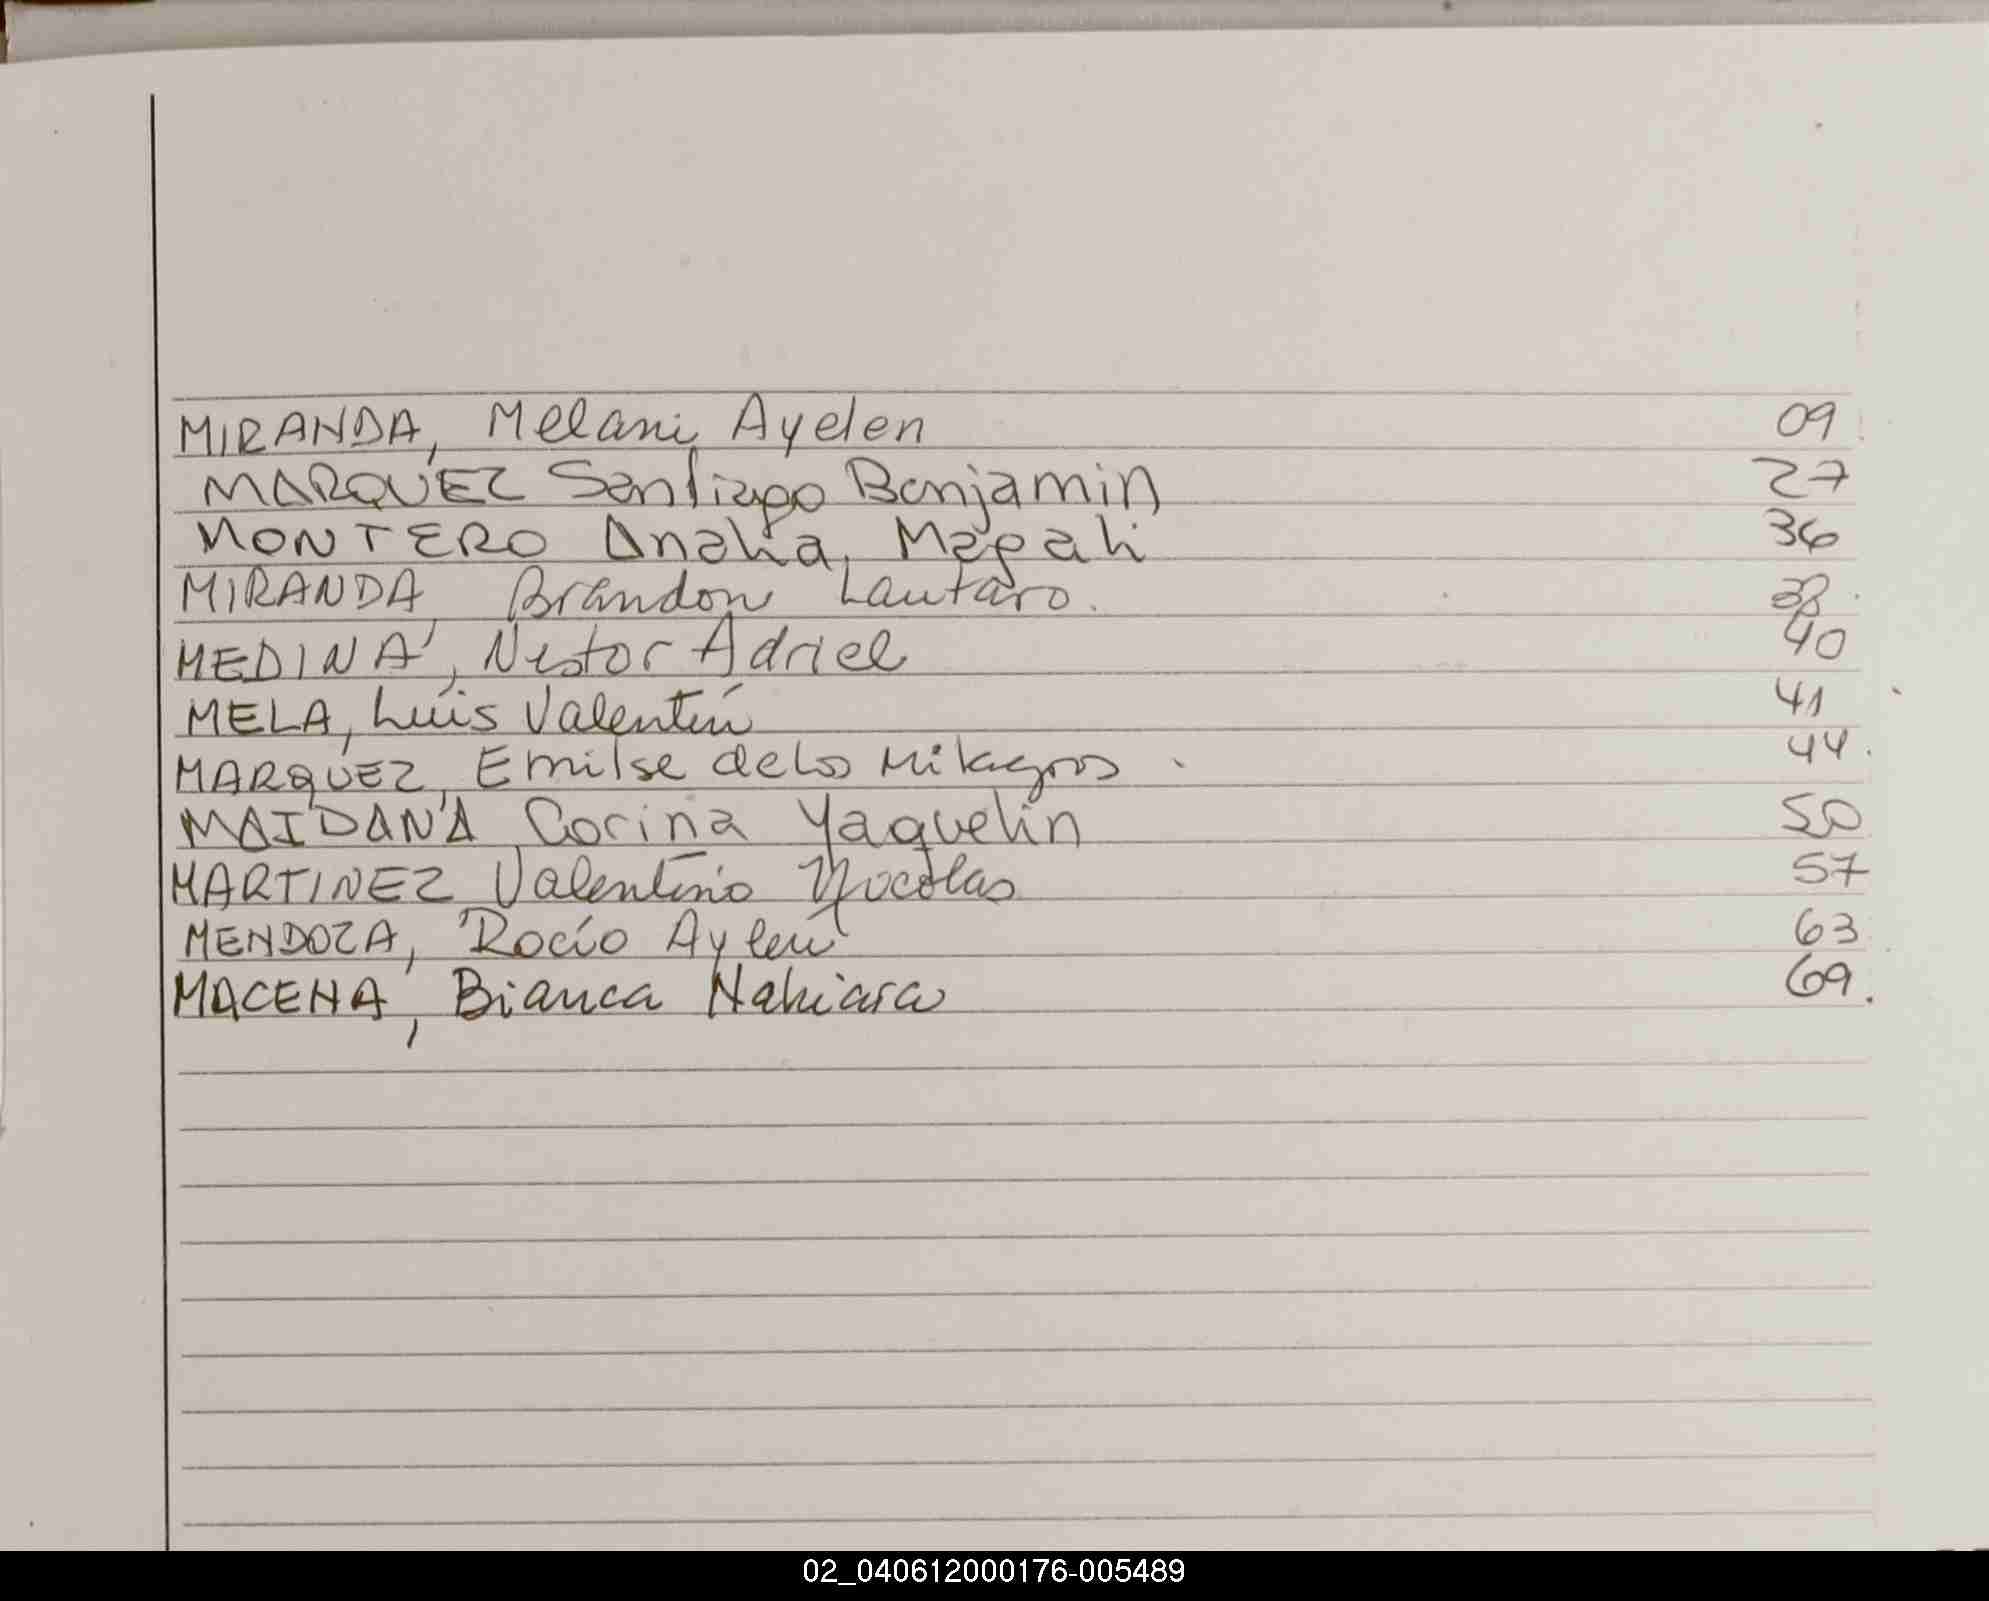 MIRANDA, Melani Ayelen 09
MARQUEZ Santiago Benjamin 27
MONTERO Analia Magali 36
MIRANDA Brandon Lautaro. 38
MEDINA, Nestor Adriel 40
MELA, Luis Valentín 41
MARQUEZ, Emilse de los Milagros 44.
MAIDANA, Corina Yaquelin 50
MARTINEZ Valentino Nicolas 57
MENDOZA, Rocío Aylen 63
MACENA, Bianca Nahiara 69.
02_040612000176-005489